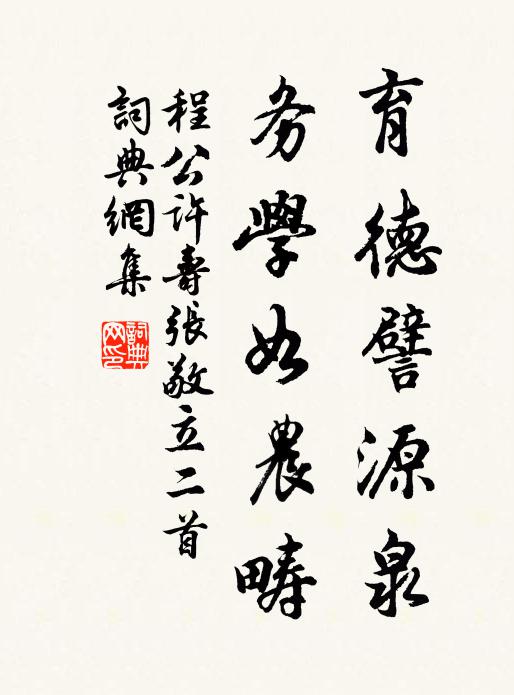 育德譬源泉
务學如農疇
程公許壽張敬立二首
詞典網集
詞典网印